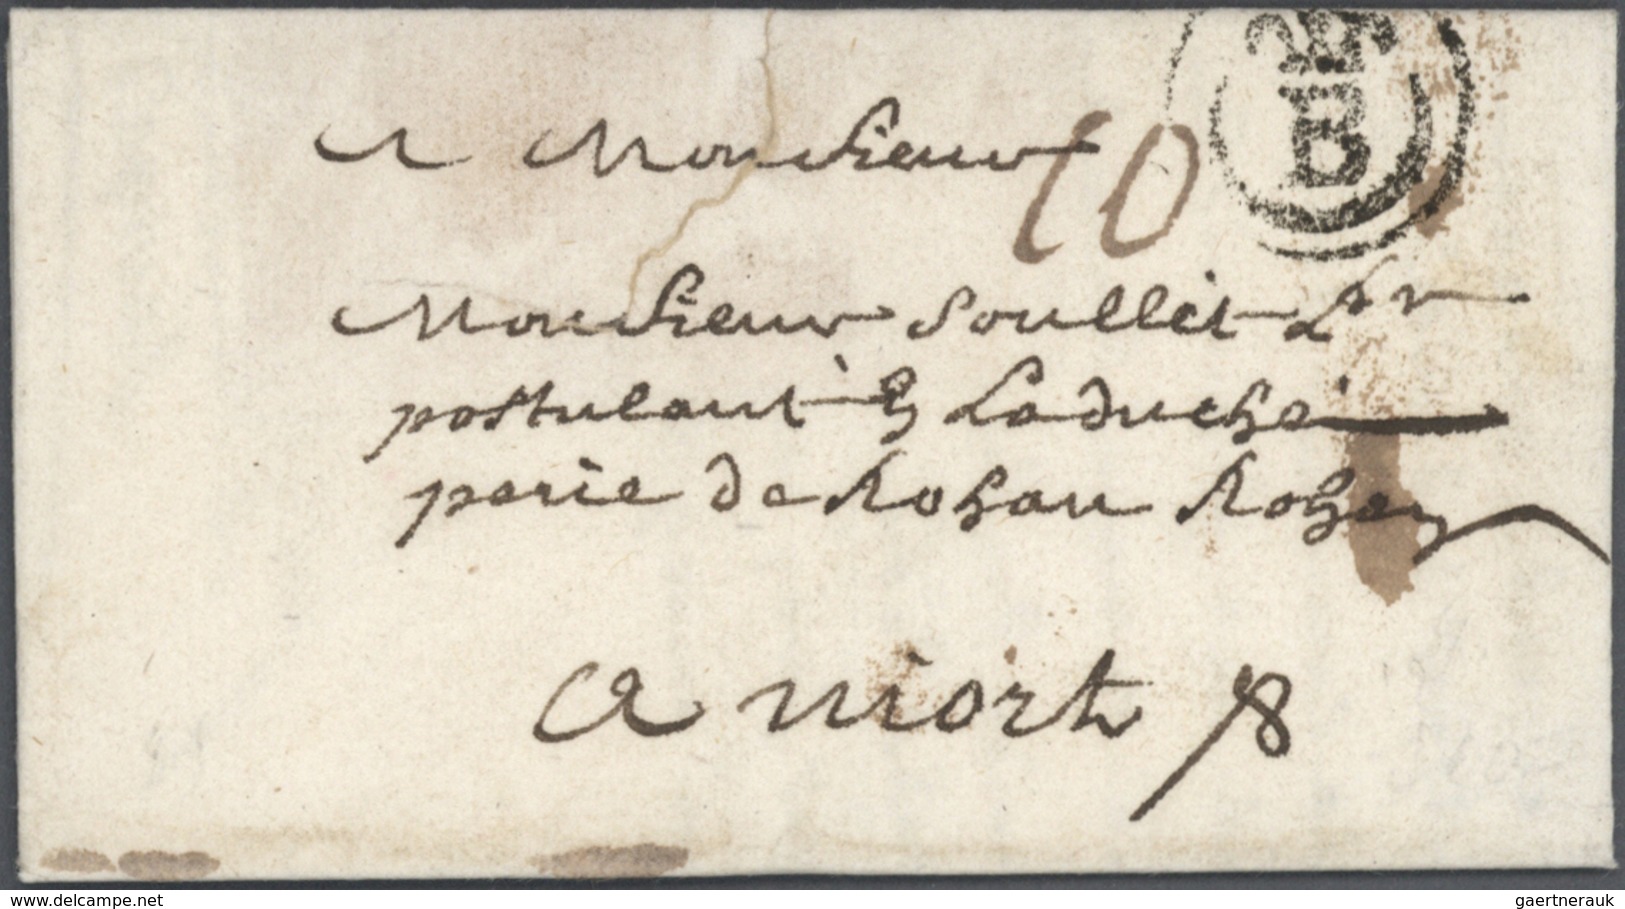 A Monsieur
10
B
Monsieur Soullet
postulant à La duche
perie de Rohan Rohan
A niort
delcampe.net
gaertnerauk